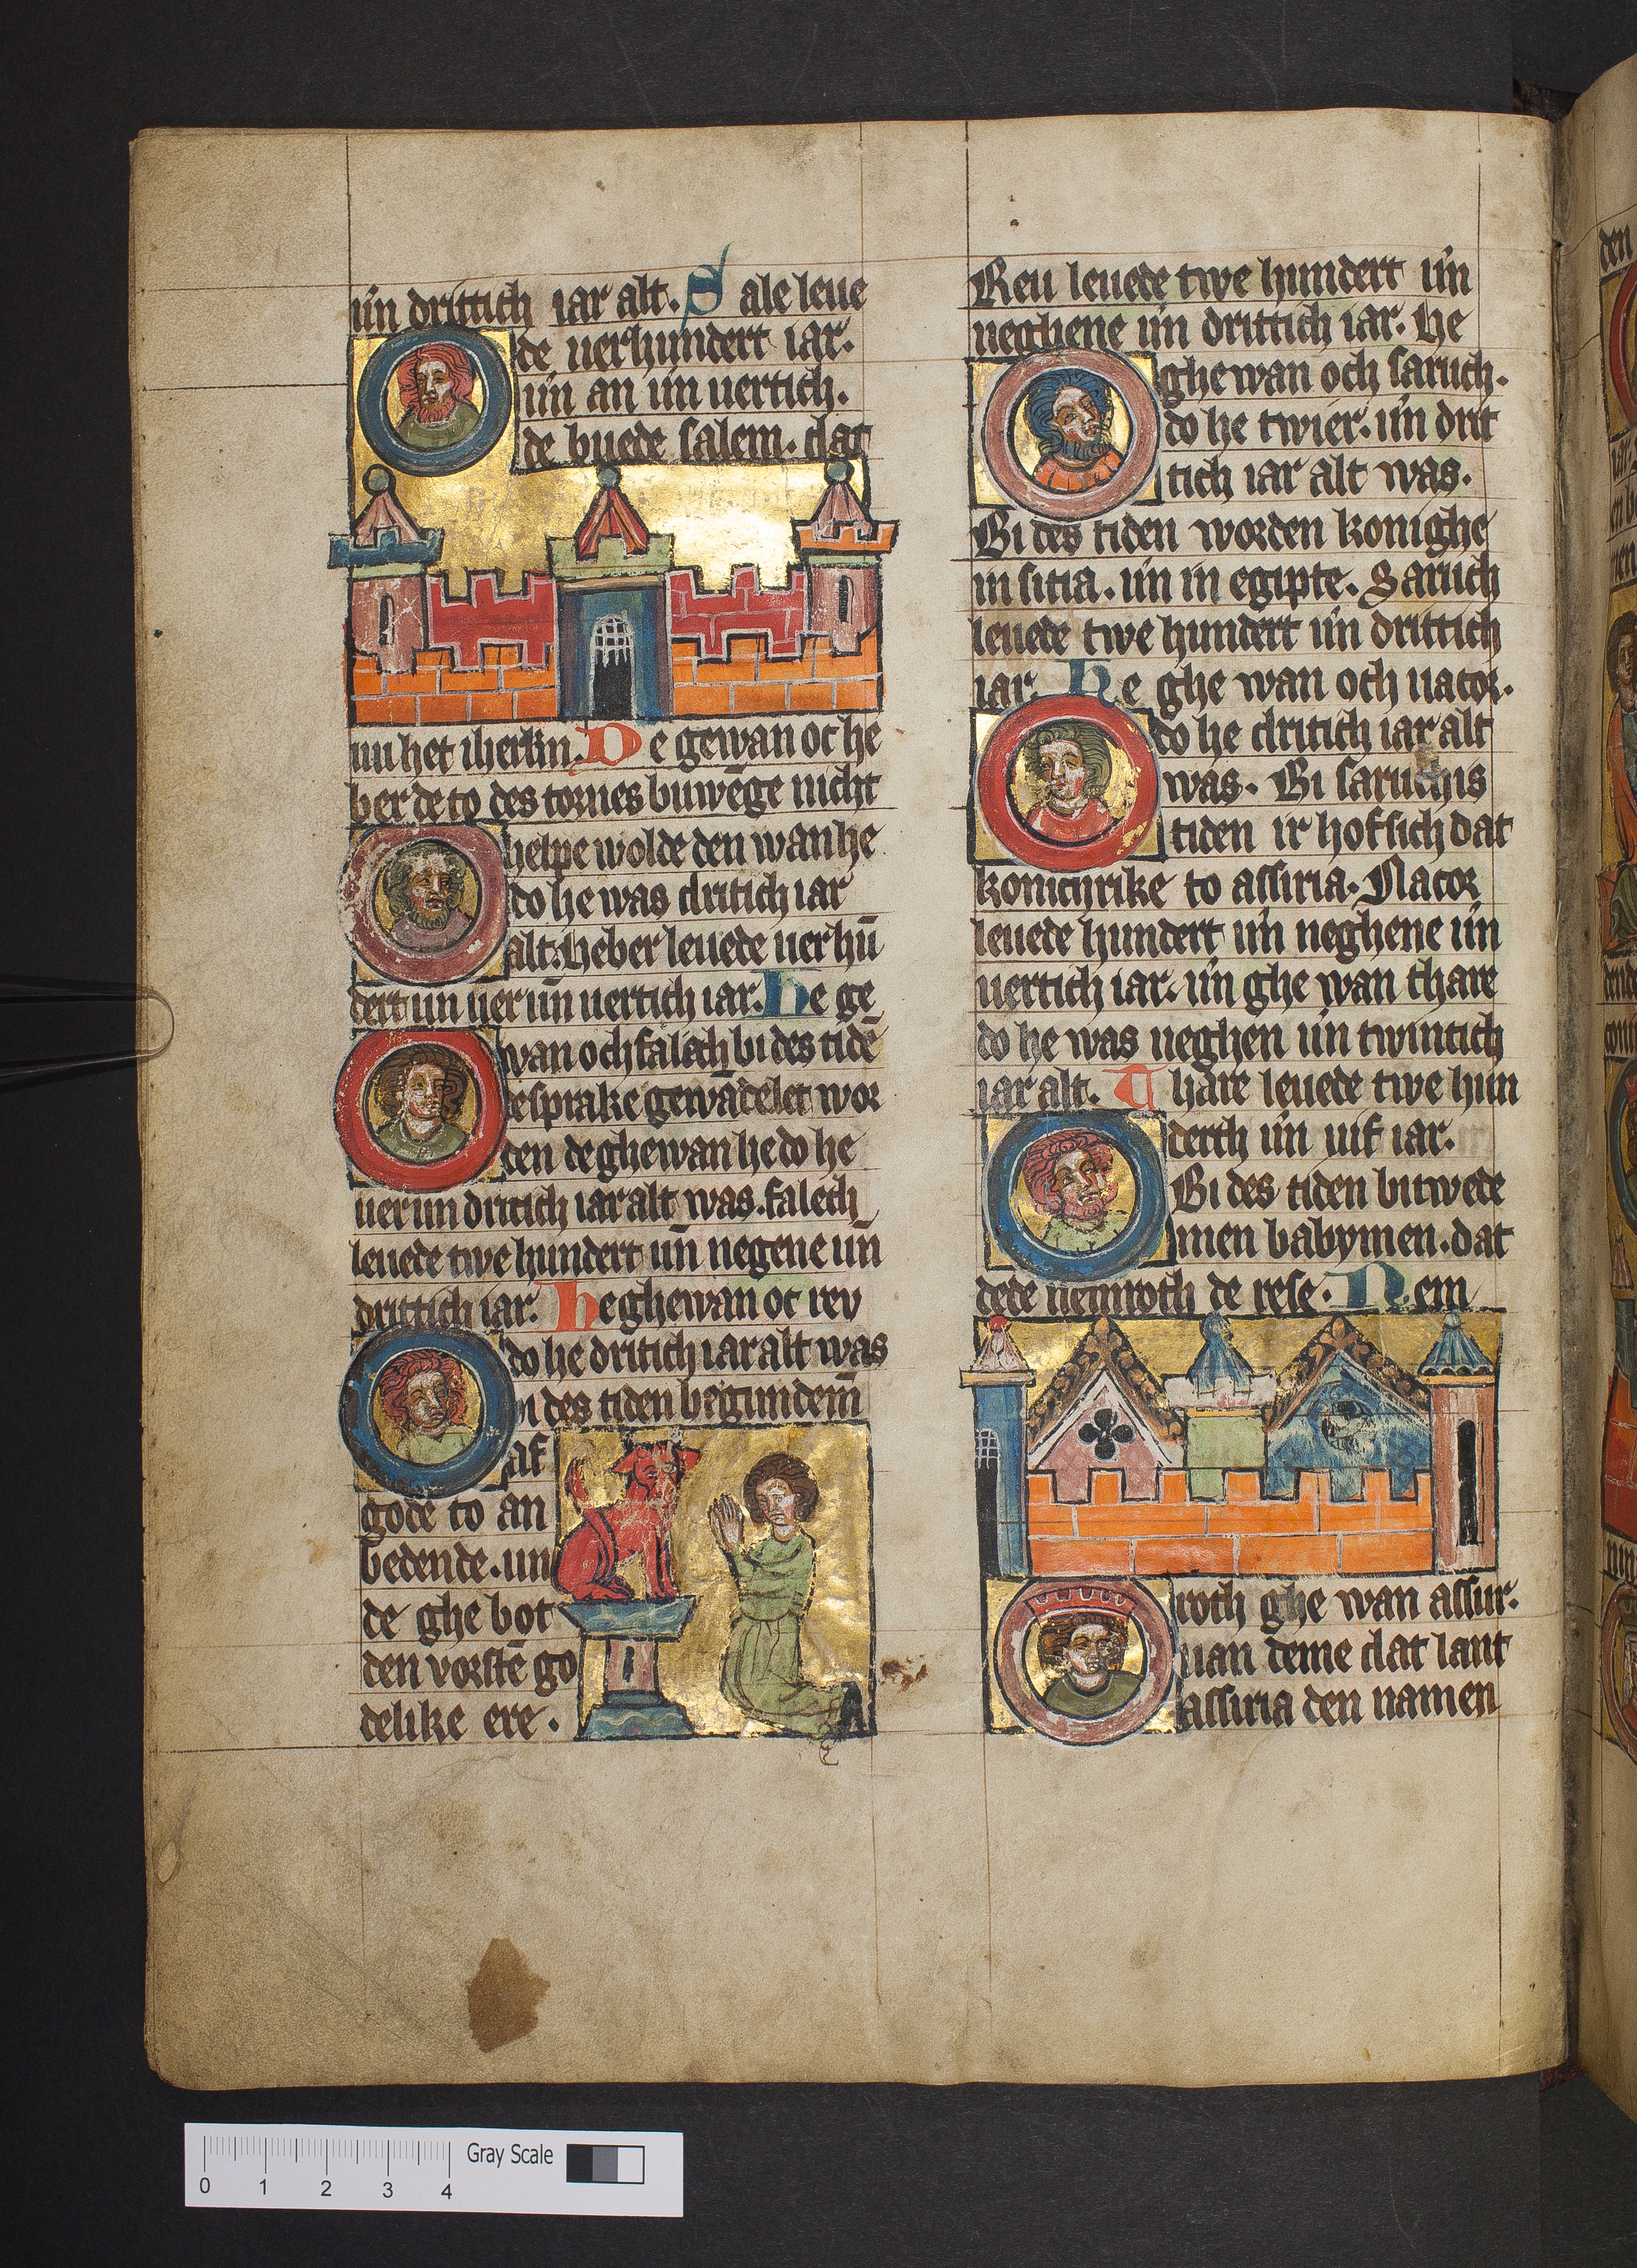 un̄ drittich iar alt. Sale leue
de uerhundert iar.
un̄ an un̄ uertich.
de buede salem. dat
nu het iherl̄m. De gewan oc he
ber de to des tornes buwēge nicht
helpe wolde den wan he
do he was dritich iar
alt. heber leuede uer hū
dert un uer un̄ uertich iar. he ge
wan och falech bi des tidē
de sprake gewādelet wor
den de ghewan he do he
uer un dritich iar alt was. falech
leuede twe hundert un̄ negene un
drittich iar. he ghewan oc reu
do he dritich iar alt was
bi des tiden begundem̄
af
gode to an
bedende. un
de ghe bot
den vorstē go
delike ere.
Reu leuede twe hundert un̄
neghene un̄ drittich iar. he
ghe wan och saruch.
do he twier. un̄ drit
tich iar alt was.
Bi des tiden worden konighe
in sitia. un̄ in egipte. Saruch
leuede twe hundert un̄ drittich
iar. he ghe wan och nator.
do he dritich iar alt
was. Bi saruchis
tiden ir hof sich dat
konichrike to assiria. Nacor
leuede hundert un̄ neghene un̄
uertich iar. un̄ ghe wan thare
do he was neghen un̄ twintich
iar alt. Thare leuede twe hun
derth un̄ uif iar.
Bi des tiden bitwede
men babymen. dat
dede nemroth de rese. Nem
roth ghe wan assur.
uan deme dat lant
assiria den namen
den
Gray Scale
0 1 2 3 4